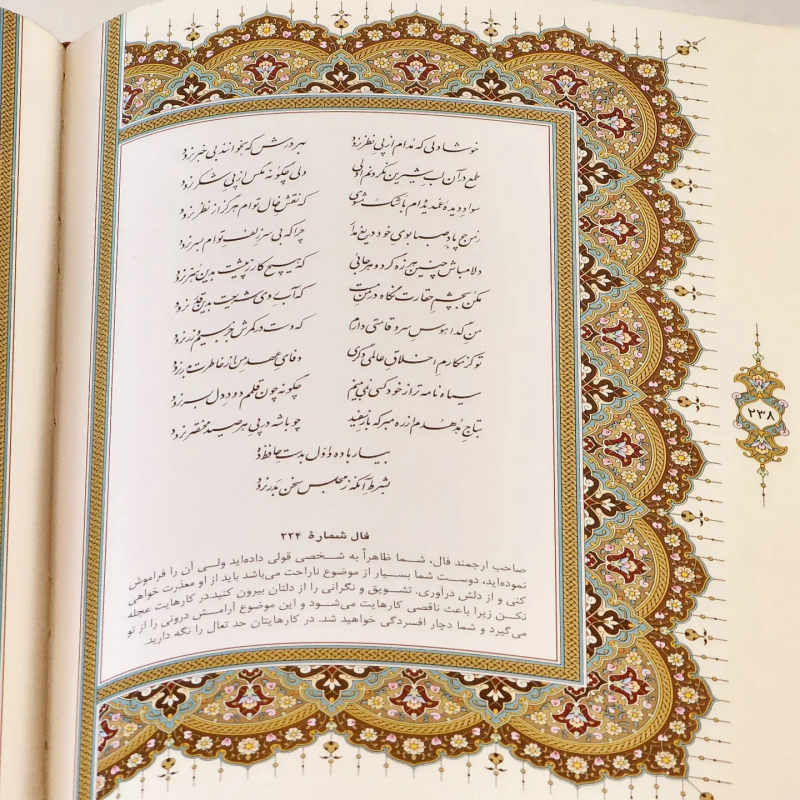 خوشا دلی که مدام از پی نظر نرود هر درش که بخوانند بی خبر نرود
طمع در آن لب شیرین نکردنم اولی ولی چگونه مگس از پی شکر نرود
سواد دیده غمدیده‌ام باشک مشوی که نقش خال توام هرگز از نظر نرود
ز من چو باد صبا بوی خود دریغ مدار چرا که بی سر زلف توام بسر نرود
دلا مباش چنین هرزه گرد و هرجائی که هیچ کار ز پیشت بدین هنر نرود
مکن بچشم حقارت نگاه در من مست که آبروی شریعت بدین قدر نرود
من گدا هوس سرو قامتی دارم که دست در کمرش جز بسیم و زر نرود
تو کز مکارم اخلاق عالمی دگری وفای عهد من از خاطرت بدر نرود
سیاه نامه تر از خود کسی نمی بینم چگونه چون قلمم دود دل بسر نرود
بتاج هدهدم از ره مبر که باز سفید چو باشه در پی هر صید مختصر نرود
بیار باده و اول بدست حافظ ده
بشرط آنکه ز مجلس سخن بدر نرود
فال شمارهٔ ۲۲۴
صاحب ارجمند فال، شما ظاهراً به شخصی قولی داده‌اید ولی آن را فراموش
نموده‌اید، دوست شما بسیار از موضوع ناراحت می‌باشد باید از او معذرت خواهی
کنی و از دلش درآوری، تشویق و نگرانی را از دلتان بیرون کنید.در کارهایت عجله
نکن زیرا باعث ناقصی کارهایت می‌شود و این موضوع آرامش درونی را از تو
می‌گیرد و شما دچار افسردگی خواهید شد. در کارهایتان حد تعال را نگه دارید.
۲۳۸